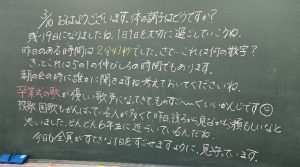 3/10 おはようございます。体の調子はどうですか?
残り9日になりましたね。1日1日を大切に過ごしていこうね。
昨日のある時間は2分43秒でした。さて…これは何の数字?
きっと、これは5の1の伸びしろの時間でもあります。
朝の会の時に誰かに聞きますね。考えておいてくださいね。
卒業式の歌が優しい歌声になってきてものすごーくいいかんじです
校歌、国歌もがんばっている人が多くて6日後ろから見ながら頼もしいなと
思いました。どんどん6年生に近づいているんだね。
今日も全員がすてきな1日をすごせますように。見守っています。